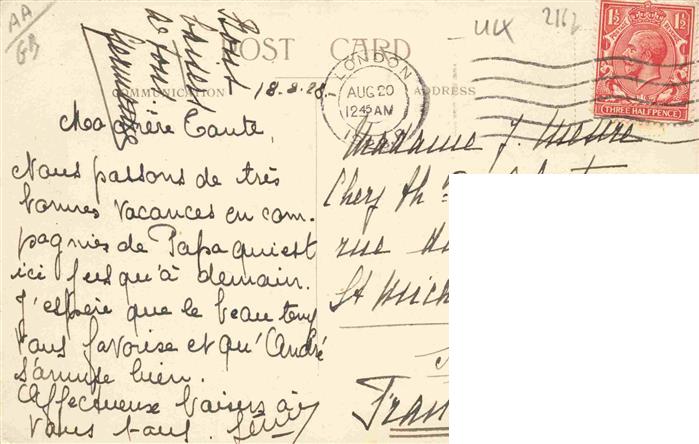 AA
GB
UIX
2162
POST CARD
COMMUNICATION
ADDRESS
LONDON
AUG 20
12 45 AM
POSTAGE REVENUE
1½ 1½
THREE HALFPENCE
Bons
baisers
de tous
Germaine
18-8-28.
Ma chère Tante,
Nous passons de très
bonnes vacances en com-
pagnies de Papa qui est
ici jusqu'à demain.
J'espère que le beau temps
vous favorise et qu'André
s'amuse bien.
Affectueux baisers à
vous tous.
Madame J.
Chez
rue
St Mich
Fran